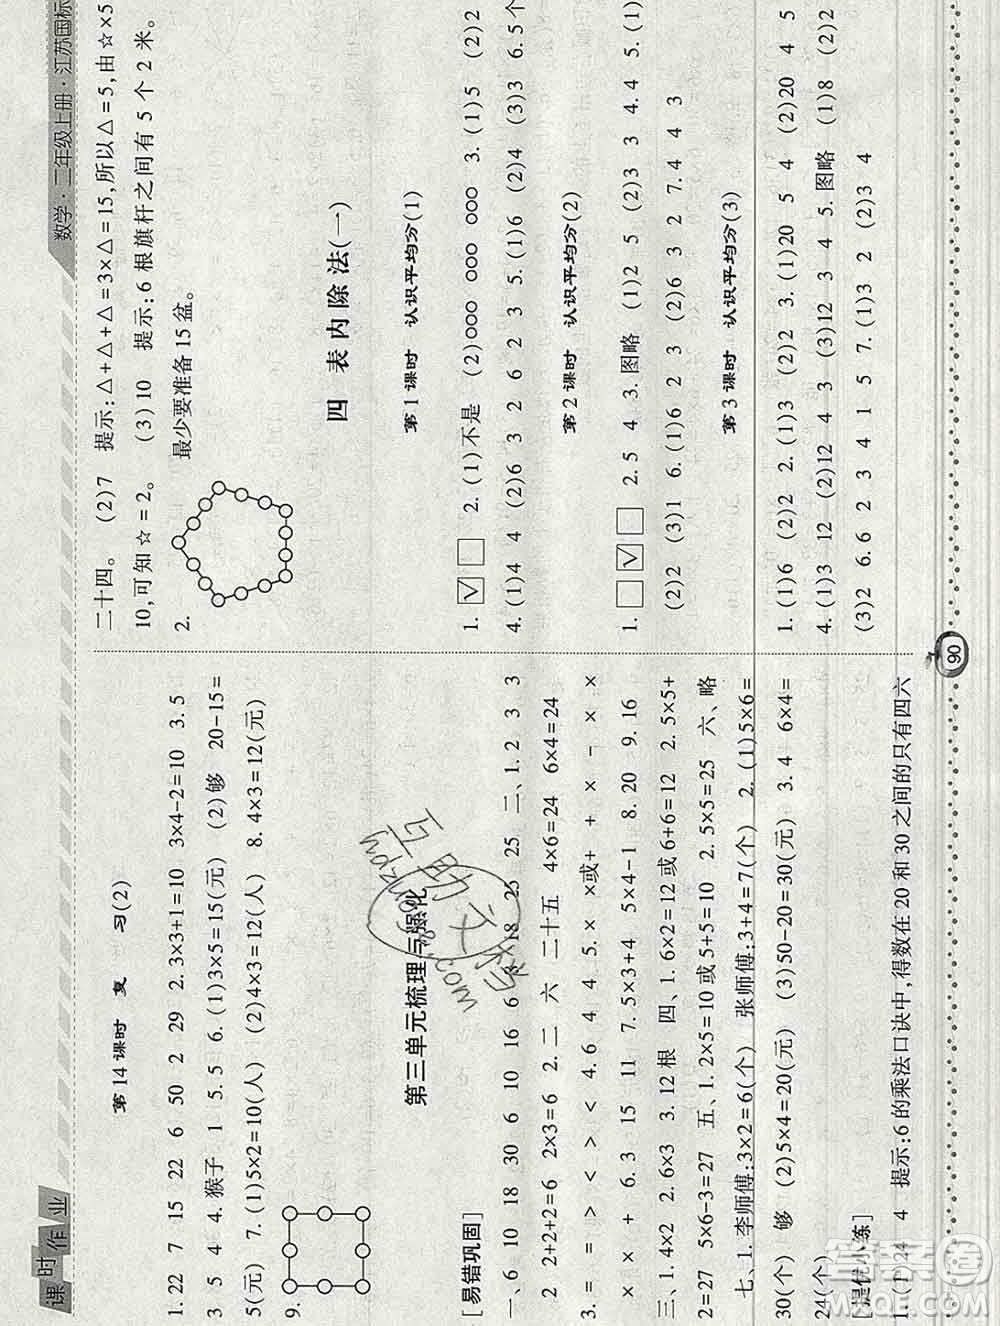 课时作业
数学·二年级上册·江苏国标
第14课时 复 习(2)
1. 22 7 15 22 6 50 2 29 2. 3×3+1=10 3×4-2=10 3. 5
3 5 4 4. 猴子 1 5. 5 6. (1)3×5=15(元) (2)够 20-15=
5(元) 7. (1)5×2=10(人) (2)4×3=12(人) 8. 4×3=12(元)
9.
第三单元梳理与强化
[易错巩固]
一、6 10 18 30 6 10 16 6 18 25 25 二、1. 2 3 3
2 2+2+2=6 2×3=6 2. 二 六 二十五 4×6=24 6×4=24
3. = = > < > < 4. 6 4 4 5. × ×或+ + × - × ×
× × + 6. 3 15 11 7. 5×3+4 5×4-1 8. 20 9. 16
三、1. 4×2 2. 6×3 3. 12根 四、1. 6×2=12或6+6=12 2. 5×5+
2=27 5×6-3=27 五、1. 2×5=10或5+5=10 2. 5×5=25 六、略
七、1. 李师傅:3×2=6(个) 张师傅:3+4=7(个) 2. (1)5×6=
30(个) 够 (2)5×4=20(元) (3)50-20=30(元) 3. 4 6×4=
24(个)
[提优小练]
1. (1)24 4 提示:6的乘法口诀中,得数在20和30之间的只有四六
二十四。 (2)7 提示:△+△+△=3×△=15,所以△=5,由☆×5
10,可知☆=2。 (3)10 提示:6根旗杆之间有5个2米。
2. 最少要准备15盆。
四 表内除法(一)
第1课时 认识平均分(1)
1. √ 2. (1)不是 (2)○○○ ○○○ ○○○ 3. (1)5 (2)2
4. (1)4 4 (2)6 3 2 6 2 3 5. (1)6 (2)4 (3)3 6. 5个
第2课时 认识平均分(2)
1. √ 2. 5 4 3. 图略 (1)2 5 (2)3 3 4. 4 5. (1)
(2)2 (3)1 6. (1)6 2 3 (2)6 3 2 7. 4 4 3
第3课时 认识平均分(3)
1. (1)6 (2)2 2. (1)3 (2)2 3. (1)20 5 4 (2)20 4 5
4. (1)3 12 (2)12 4 3 (3)12 3 4 5. 图略 (1)8 (2)2
(3)2 6. 6 2 3 4 1 5 7. (1)3 2 (2)3 4
90
互助文案
hdzuoye.com
答案圈
MXQE.COM